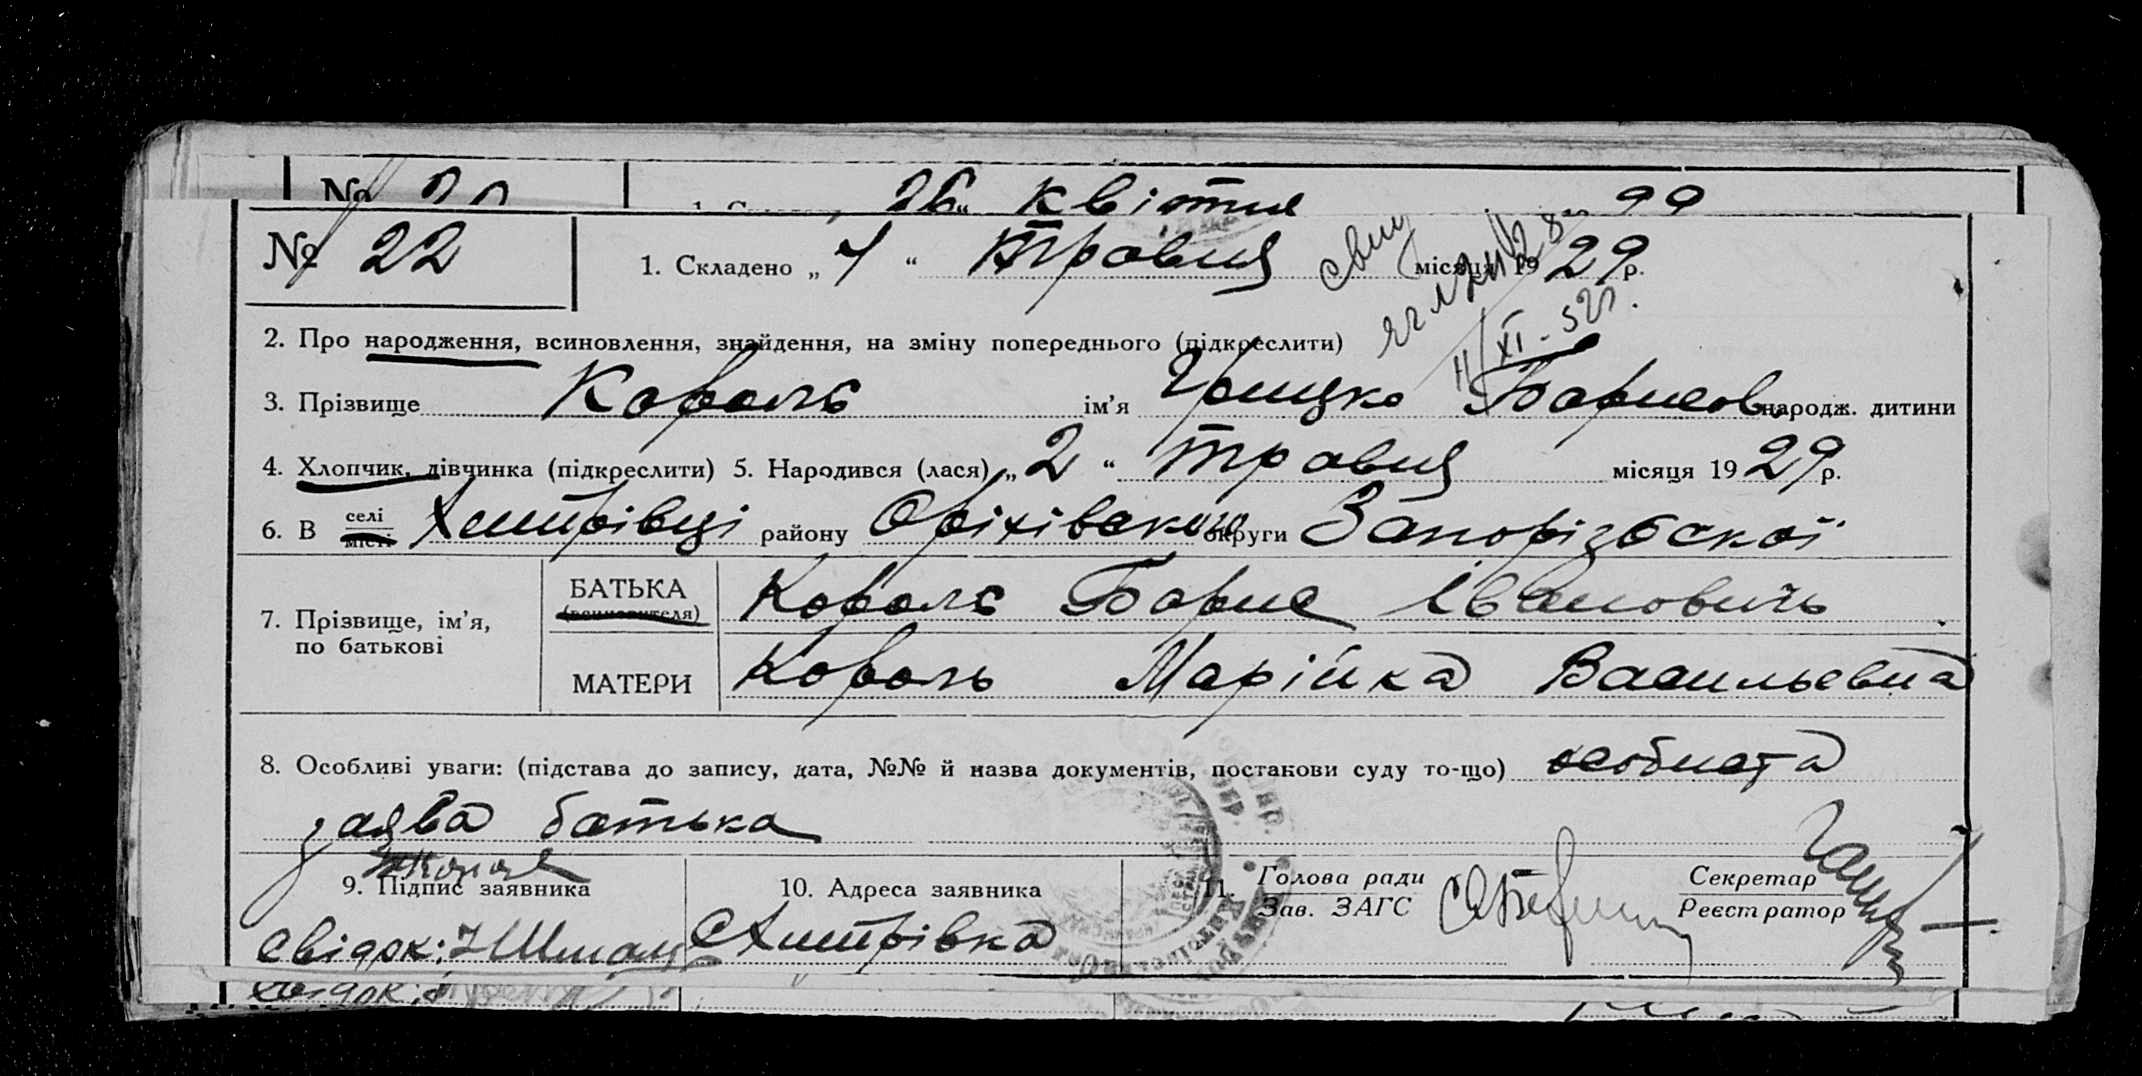 26 квітня 29
№ 22
1. Складено „ 7 “ травня місяця 1929 р.
2. Про народження, всиновлення, знайдення, на зміну попереднього (підкреслити)
XI - 52 г.
3. Прізвище Король ім’я Грицко Борисов. народж. дитини
4. Хлопчик, дівчинка (підкреслити) 5. Народився (лася) „ 2 “ травня місяця 1929 р.
6. В селі місті Дмитрівці району Оріхівського округи Запорізької
7. Прізвище, ім’я, по батькові
БАТЬКА (всиновителя) Король Борис Івановичь
МАТЕРИ Король Марійка Васильевна
8. Особливі уваги: (підстава до запису, дата, №№ й назва документів, постакови суду то-що) особиста
заява батька
9. Підпис заявника
10. Адреса заявника
11. Голова ради
Зав. ЗАГС
Секретар
Реєстратор
свідок:
с Дмитрівка